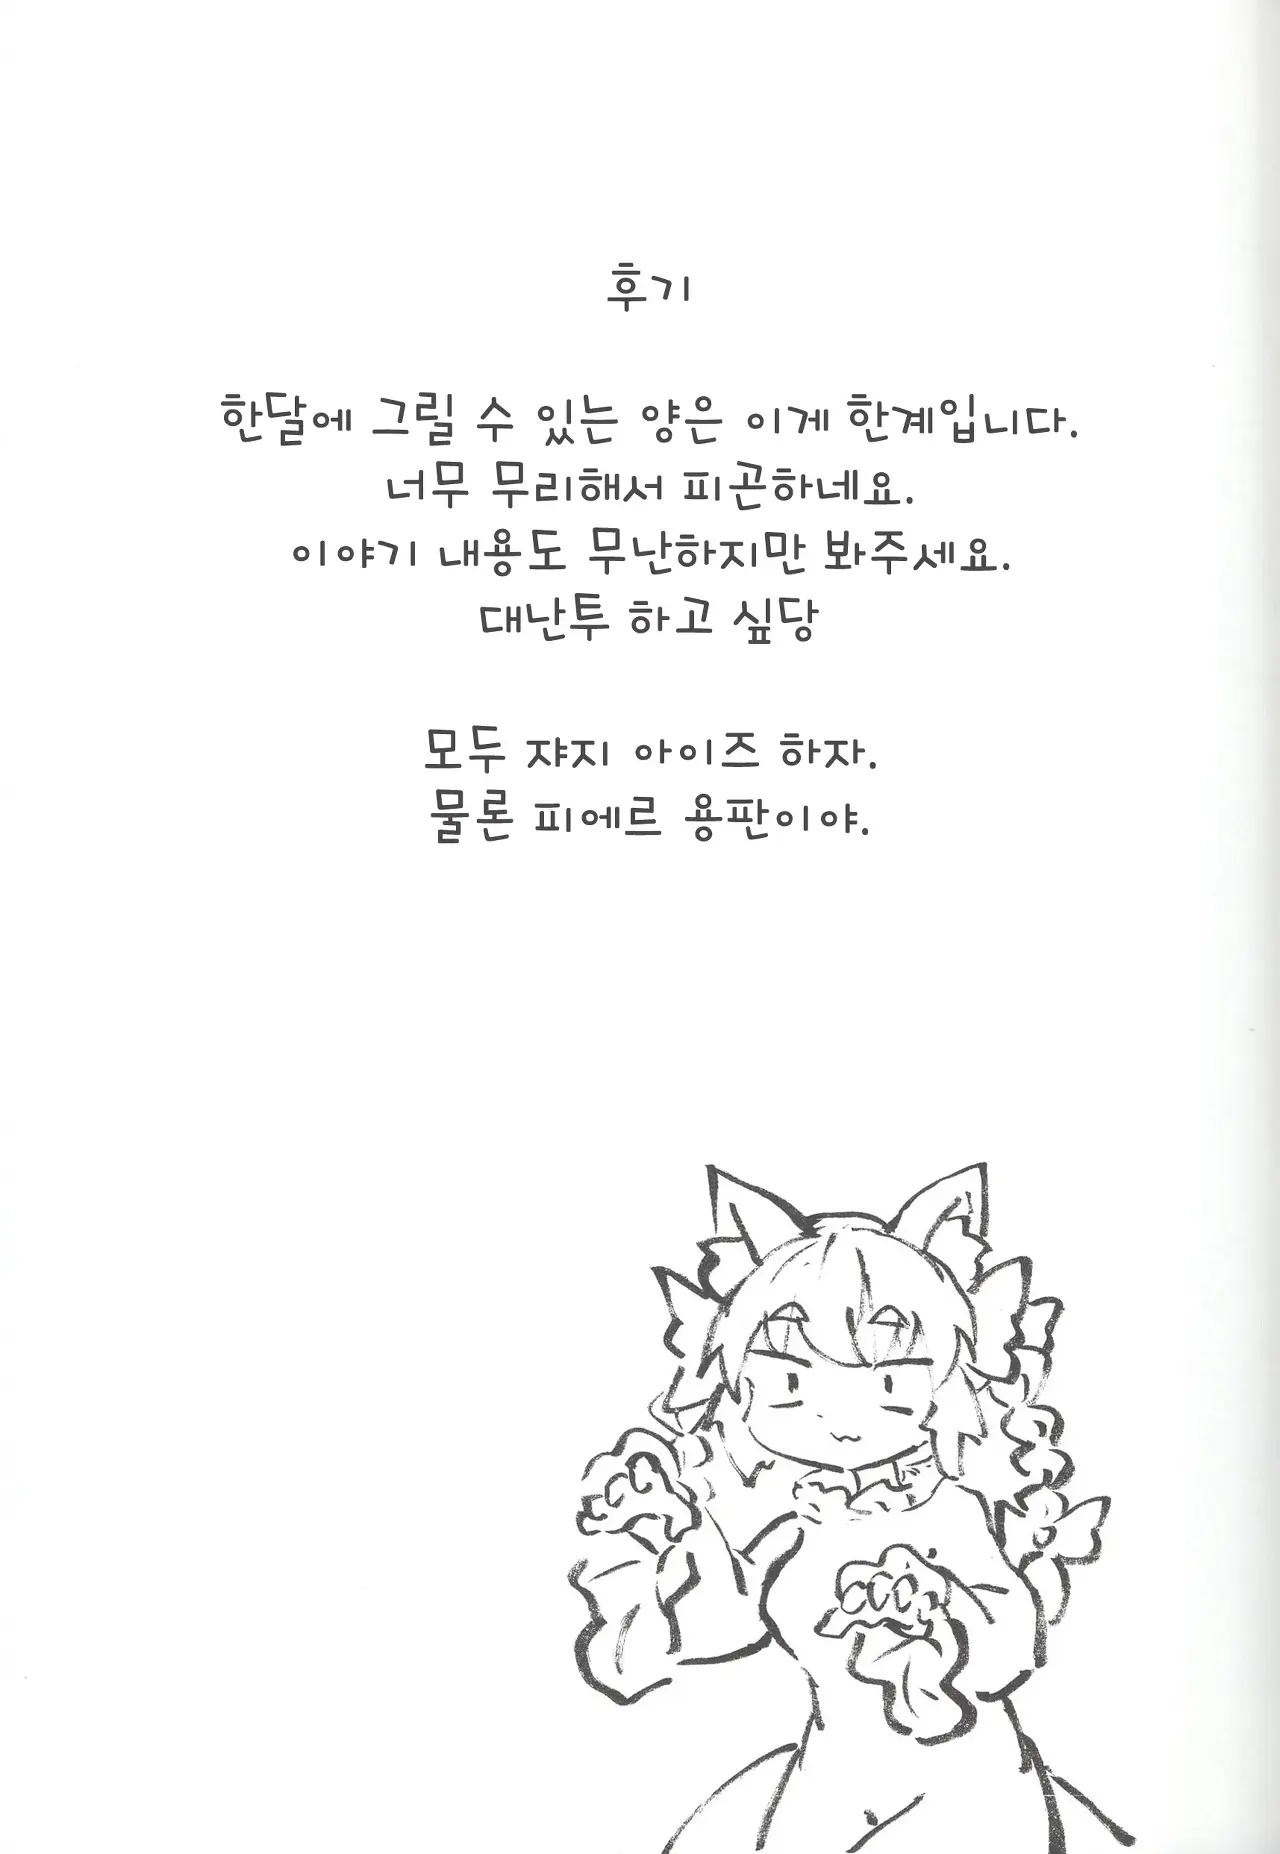 후기
한달에 그릴 수 있는 양은 이게 한계입니다.
너무 무리해서 피곤하네요.
이야기 내용도 무난하지만 봐주세요.
대난투 하고 싶당
모두 쟈지 아이즈 하자.
물론 피에르 용판이야.